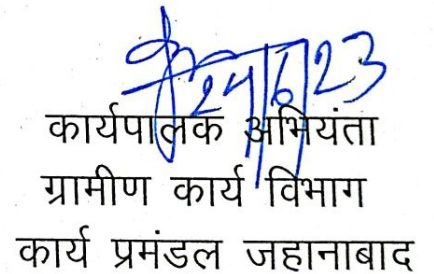 24/6/23
कार्यपालक अभियंता
ग्रामीण कार्य विभाग
कार्य प्रमंडल जहानाबाद